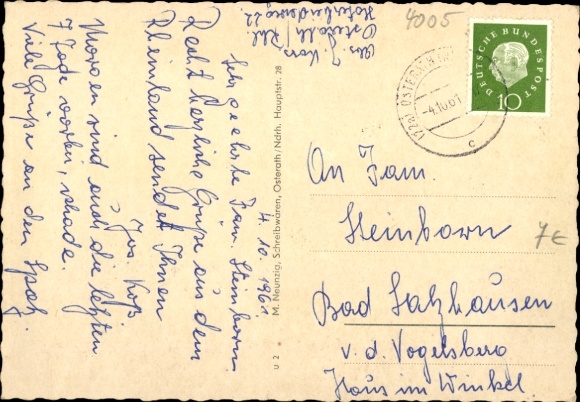 4. 10. 1961.
Sehr geehrte Fam. Steinborn
Recht herzliche Grüße aus dem
Rheinland sendet Ihnen
Jos.
Morgen sind auch die letzten
7 Tage vorbei, schade.
Viele Grüße an den
Abs. J.
Osterath / Rhl.
4005
DEUTSCHE BUNDESPOST
10
(22a) OSTERATH
-4.10.61
c
An Fam.
Steinborn
7€
Bad Salzhausen
v. d. Vogelsberg
Haus im Winkel.
M. Neunzig, Schreibwaren, Osterath/Ndrh. Hauptstr. 28
U 2